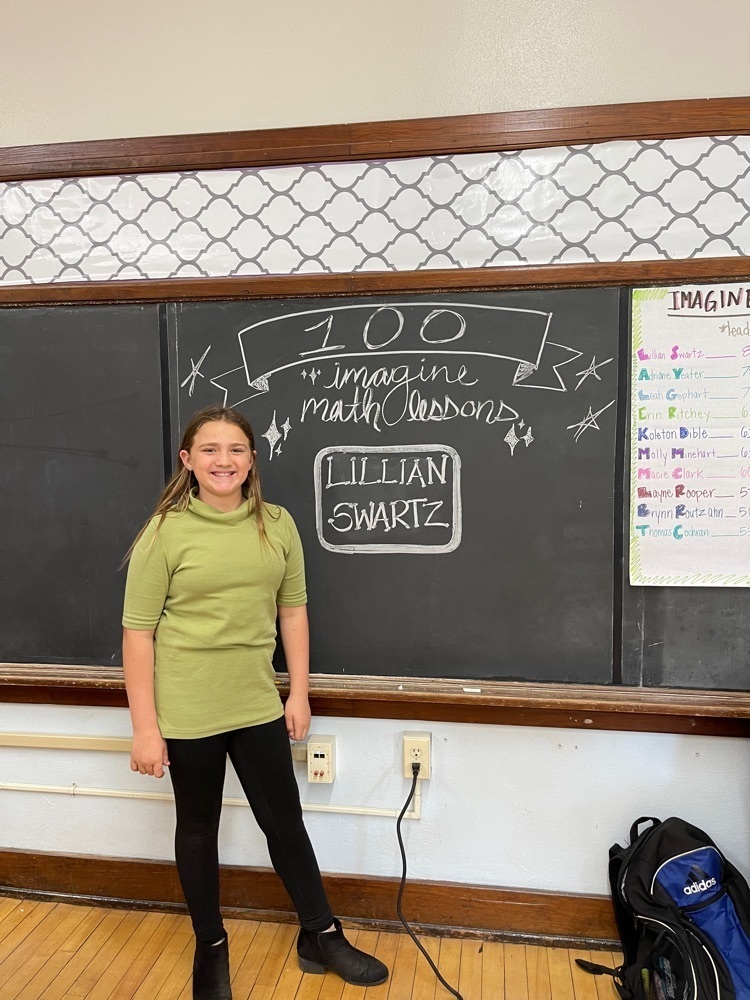 100
imagine
math lessons
LILLIAN
SWARTZ
IMAGINE
Lillian Swartz
Adriane Yeater
Leah Gephart
Erin Ritchey
Koleton Dible
Molly Minehart
Macie Clark
Rooper
Brynn Routzahn
Thomas Cochran
adidas